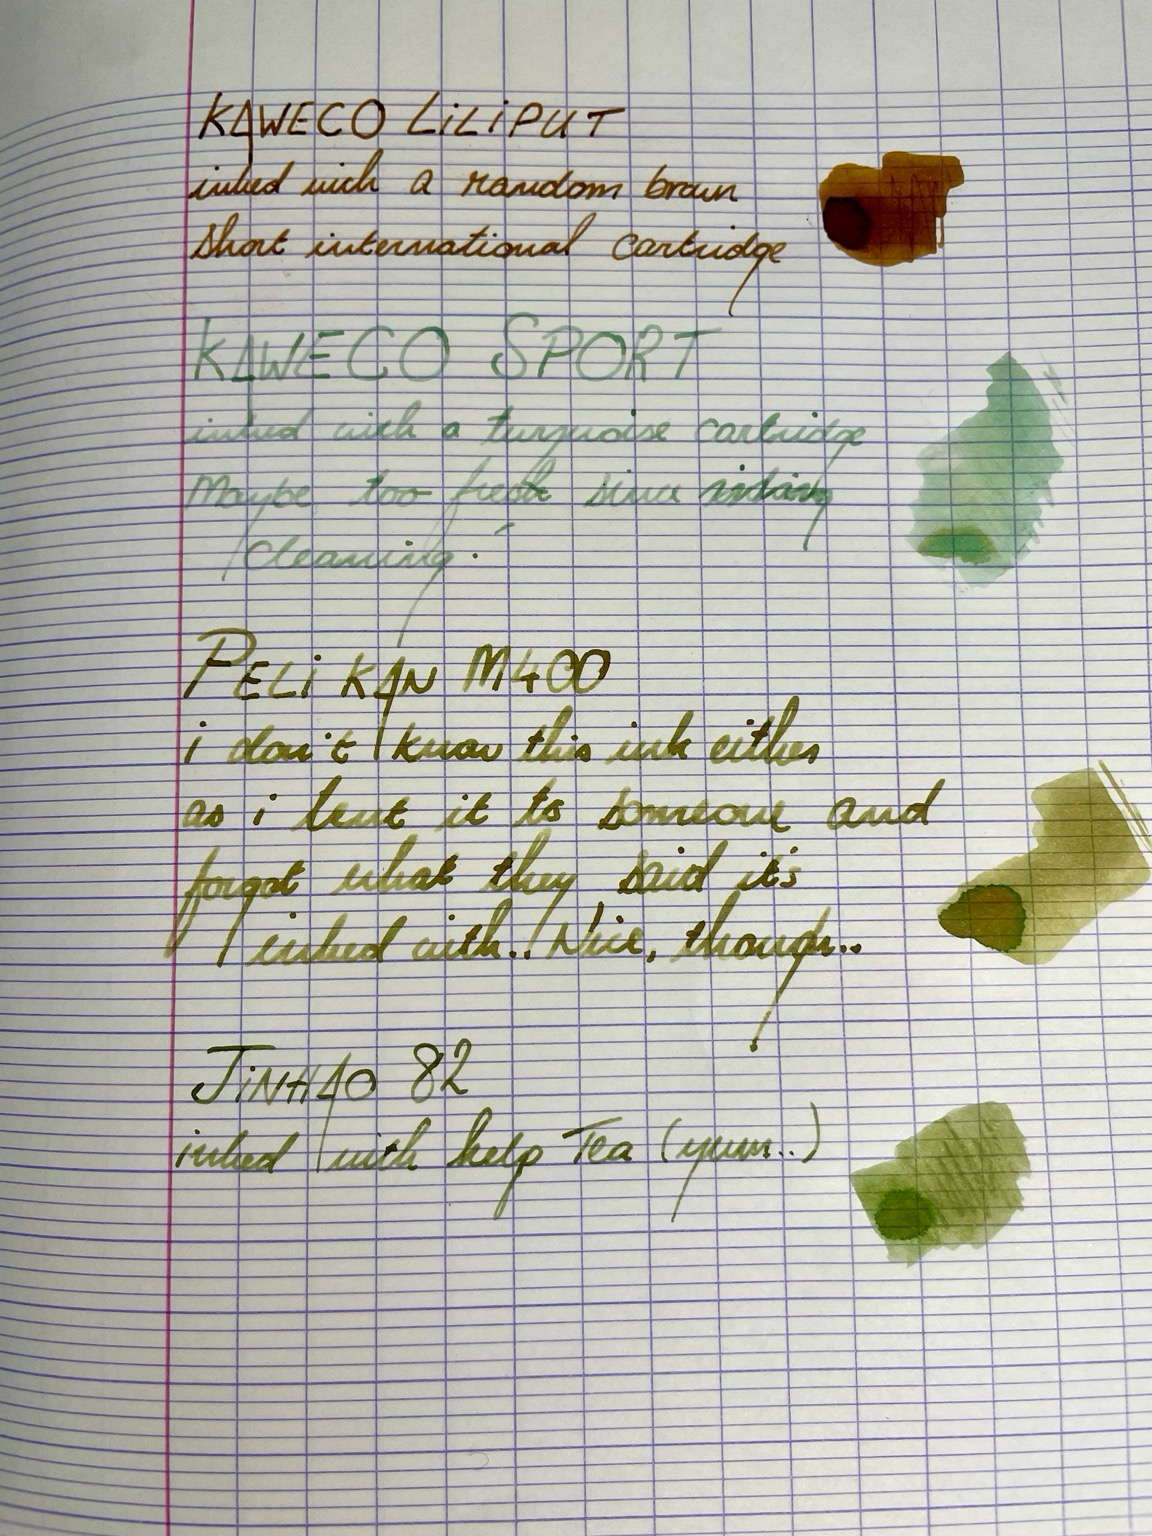 KAWECO LiLiPUT
inked with a random brown
short international cartridge
KAWECO SPORT
inked with a turquoise cartridge
Maybe too fresh since
cleaning.
PELiKAN M400
i don't know this ink either
as i lent it to someone and
forgot what they said it's
inked with.. Nice, though..
JiNHAO 82
inked with kelp Tea (yum..)